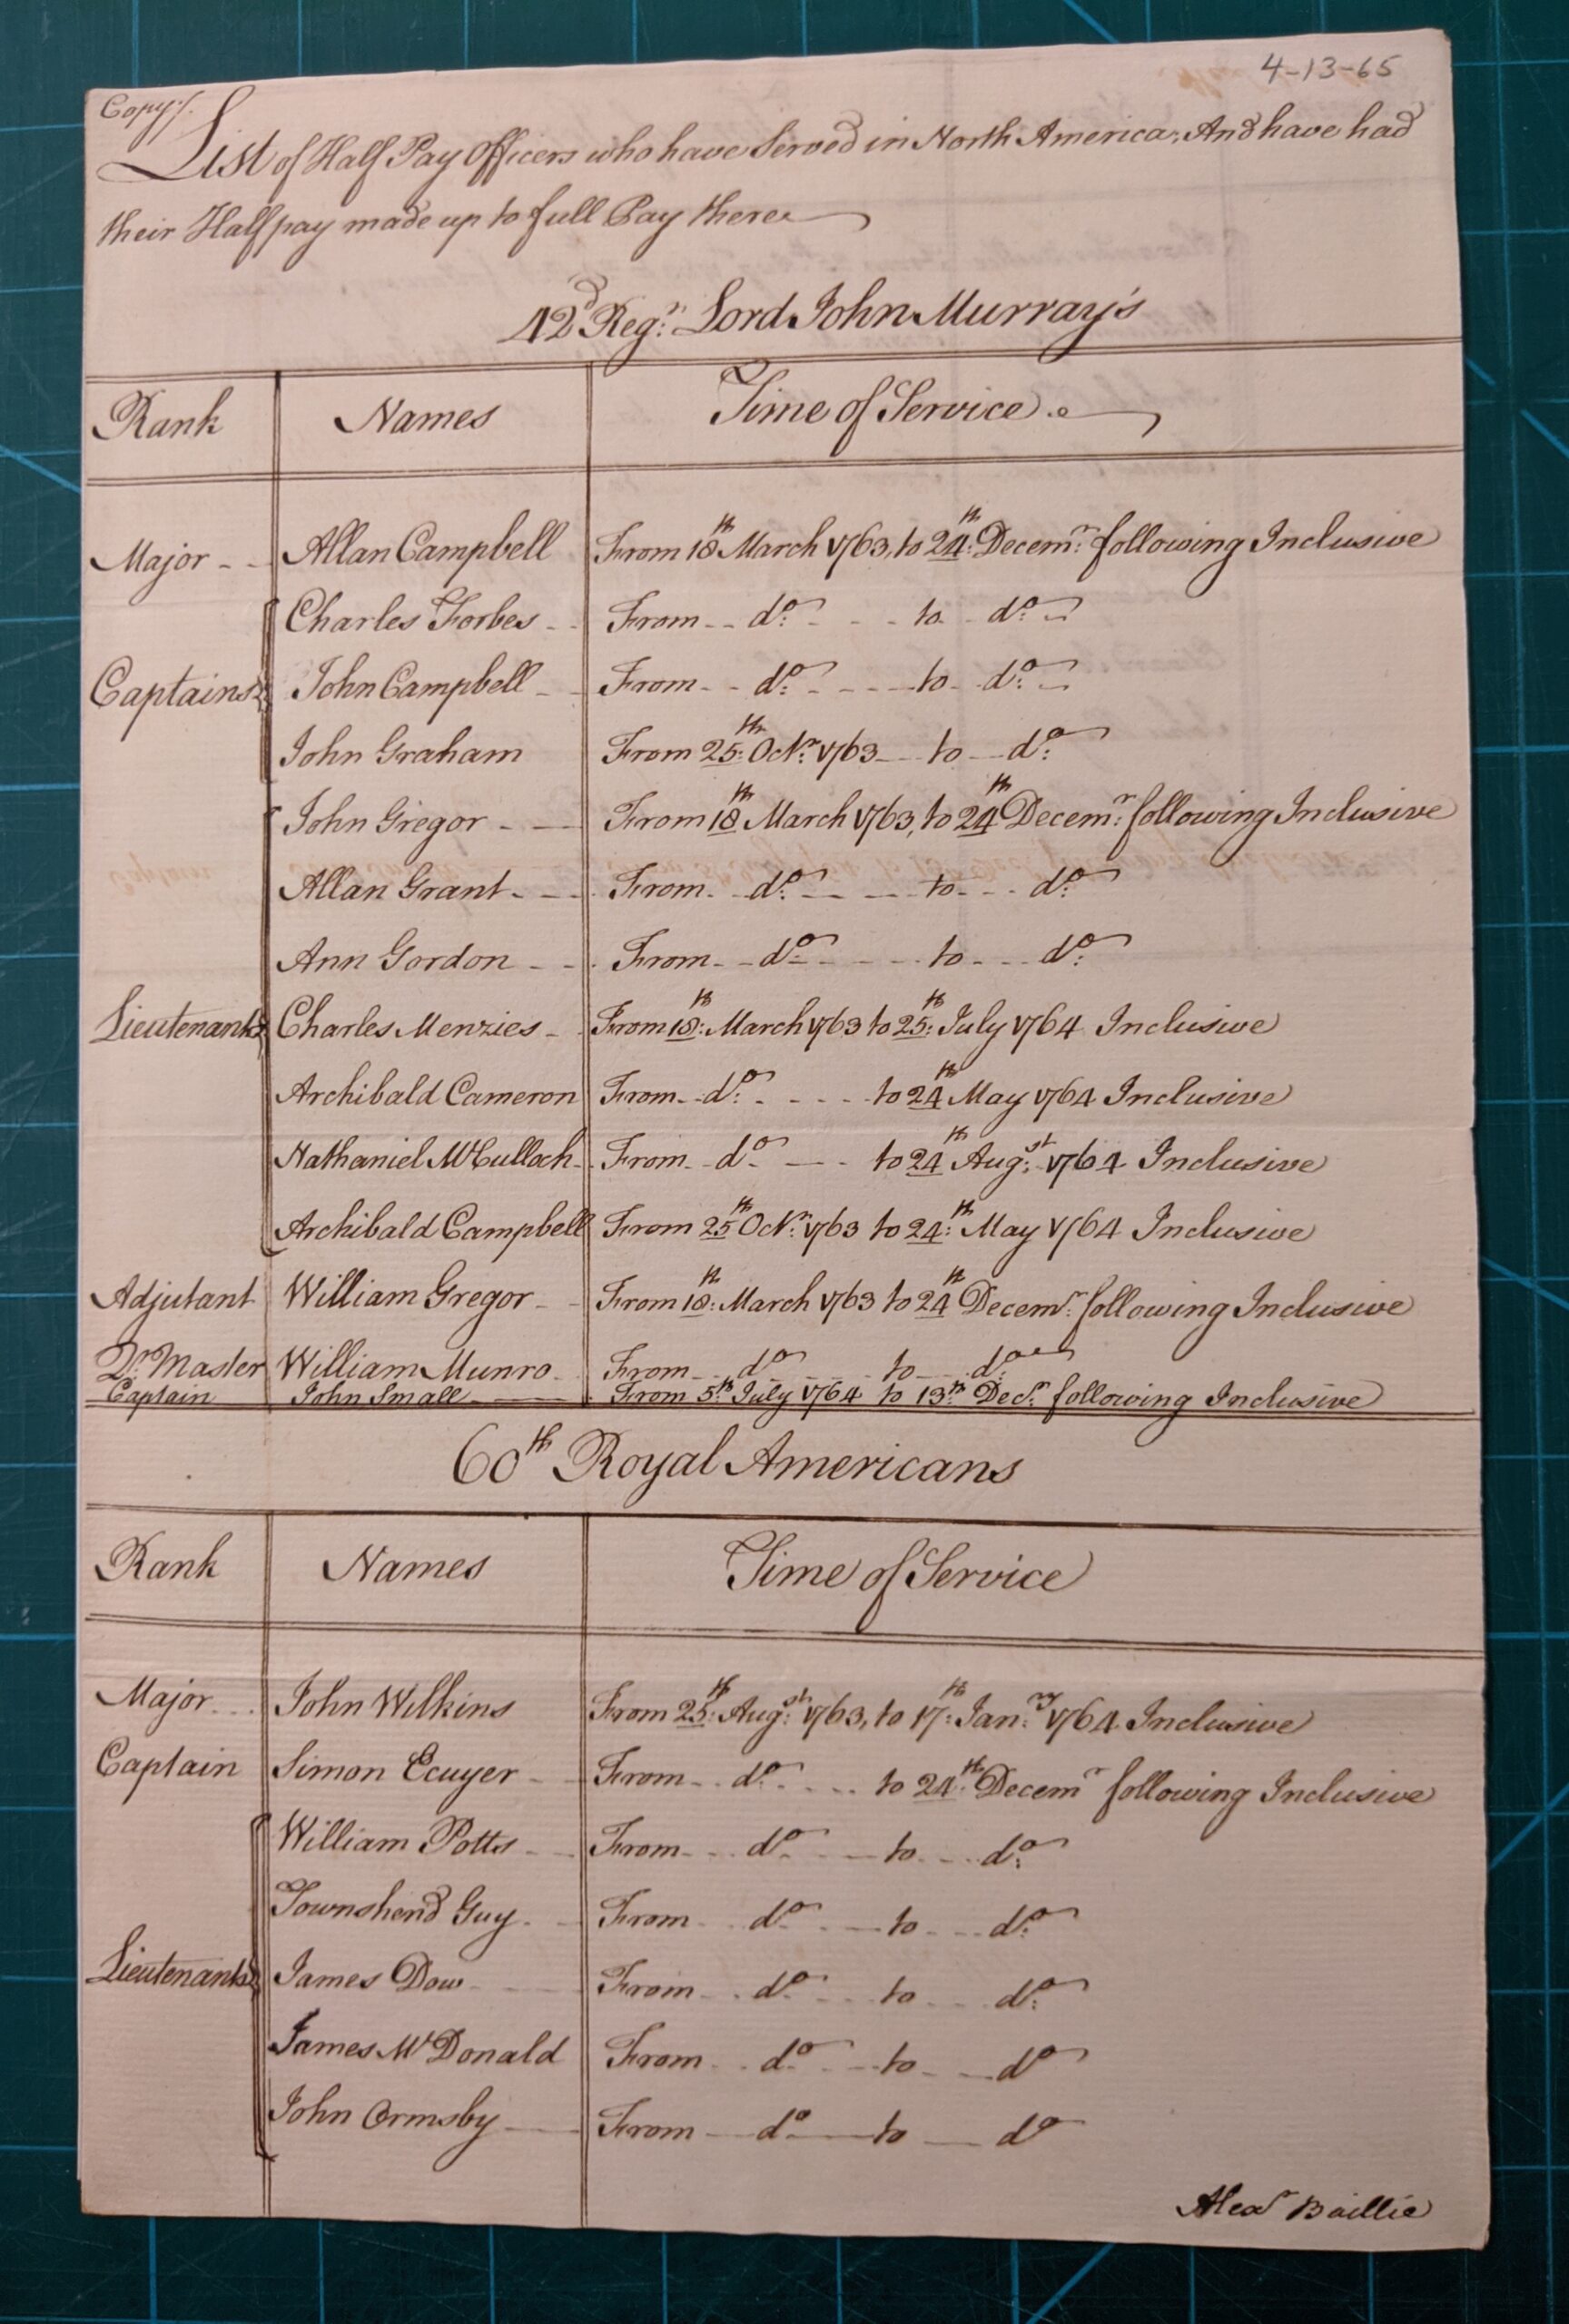 4-13-65
Copy/.
List of Half Pay Officers who have Served in North America, And have had
their Halfpay made up to full Pay there
42d Regt. Lord John Murray's
Rank Names Time of Service
Major Allan Campbell From 18th March 1763, to 24th Decemr. following Inclusive
Charles Forbes From do. to do.
Captains John Campbell From do. to do.
John Graham From 25th Octr. 1763 to do.
John Gregor From 18th March 1763, to 24th Decemr. following Inclusive
Allan Grant From do. to do.
Ann Gordon From do. to do.
Lieutenants Charles Menzies From 18th March 1763 to 25th July 1764 Inclusive
Archibald Cameron From do. to 24th May 1764 Inclusive
Nathaniel McCulloch From do. to 24th Augst. 1764 Inclusive
Archibald Campbell From 25th Octr. 1763 to 24th May 1764 Inclusive
Adjutant William Gregor From 18th March 1763 to 24th Decemr. following Inclusive
Qr. Master William Munro From do. to do.
Captain John Small From 5th July 1764 to 13th Decr. following Inclusive
60th Royal Americans
Rank Names Time of Service
Major John Wilkins From 25th Augst. 1763, to 17th Janry. 1764 Inclusive
Captain Simon Ecuyer From do. to 24th Decemr following Inclusive
William Potts From do. to do.
Townshend Guy From do. to do.
Lieutenants James Dow From do. to do.
James McDonald From do. to do
John Ormsby From do to do
Alexr Baillie